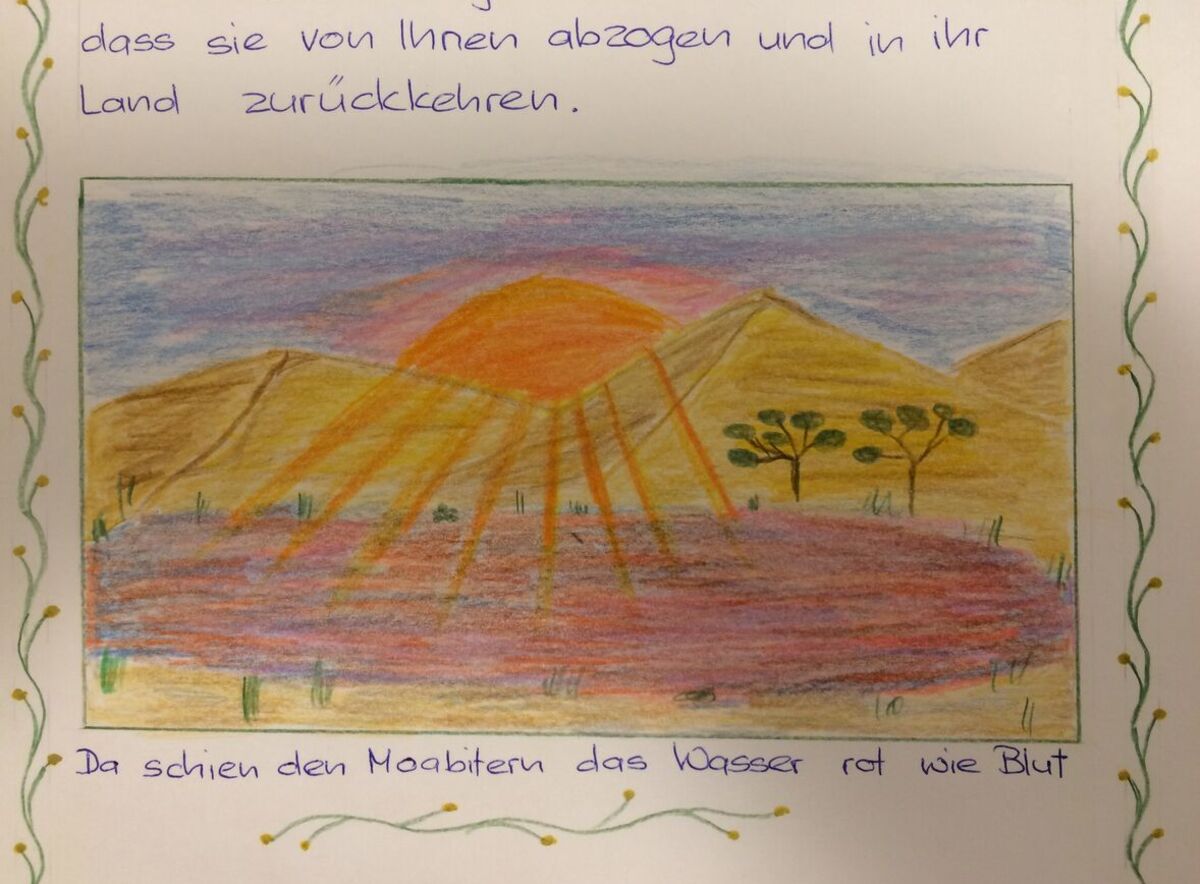 dass sie von Ihnen abzogen und in ihr
Land zurückkehren.
Da schien den Moabitern das Wasser rot wie Blut